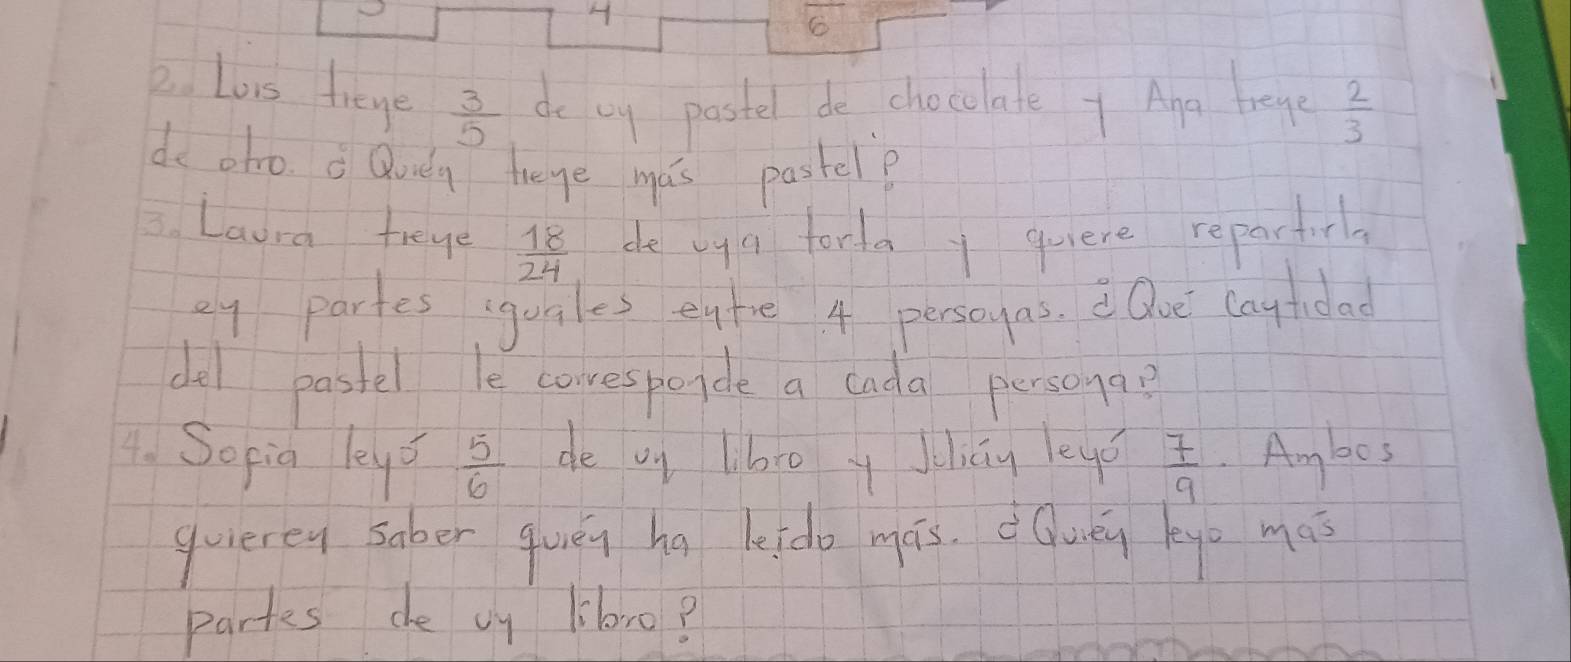 4
6
2. Luis tiene 3/5 de un pastel de chocolate y Ana tiene 2/3
de otro. ¿Quién tiene más pastel?
3. Laura tiene 18/24 de una torta y quiere repartirla
en partes iguales entre 4 personas. ¿Qué cantidad
del pastel le corresponde a cada persona?
4. Sofia leyó 5/6 de un libro y Julián leyó 7/9. Ambos
quieren saber quién ha leído más. ¿Quién leyo más
partes de un libro?